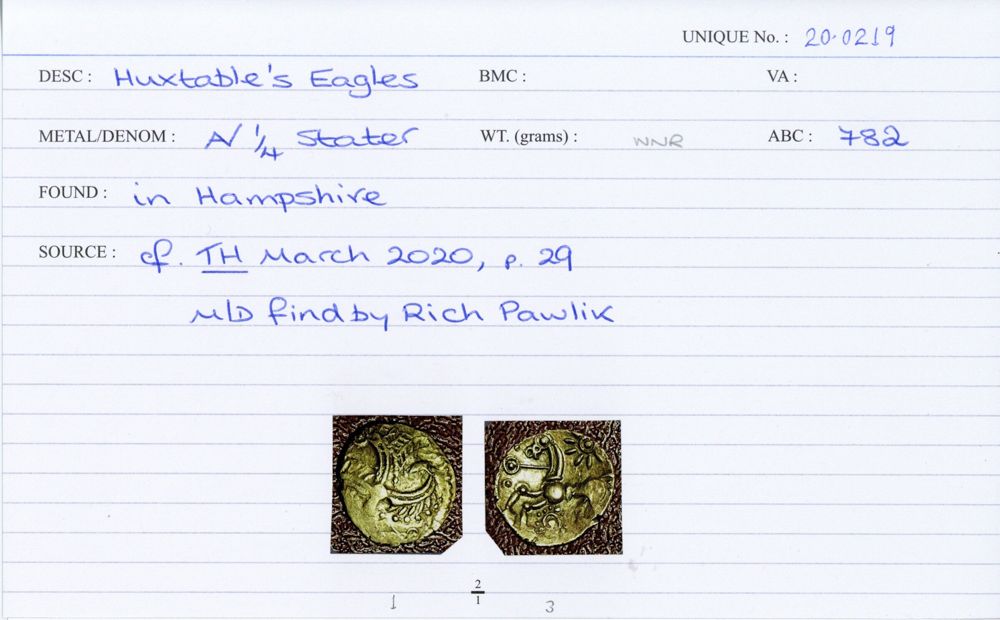 UNIQUE No. : 20.0219
DESC : Huxtable's Eagles BMC : VA :
METAL/DENOM : A/ 1/4 Stater WT. (grams) : WNR ABC : 782
FOUND : in Hampshire
SOURCE : cf. TH March 2020, p. 29
M/D find by Rich Pawlik
2
1 1 3